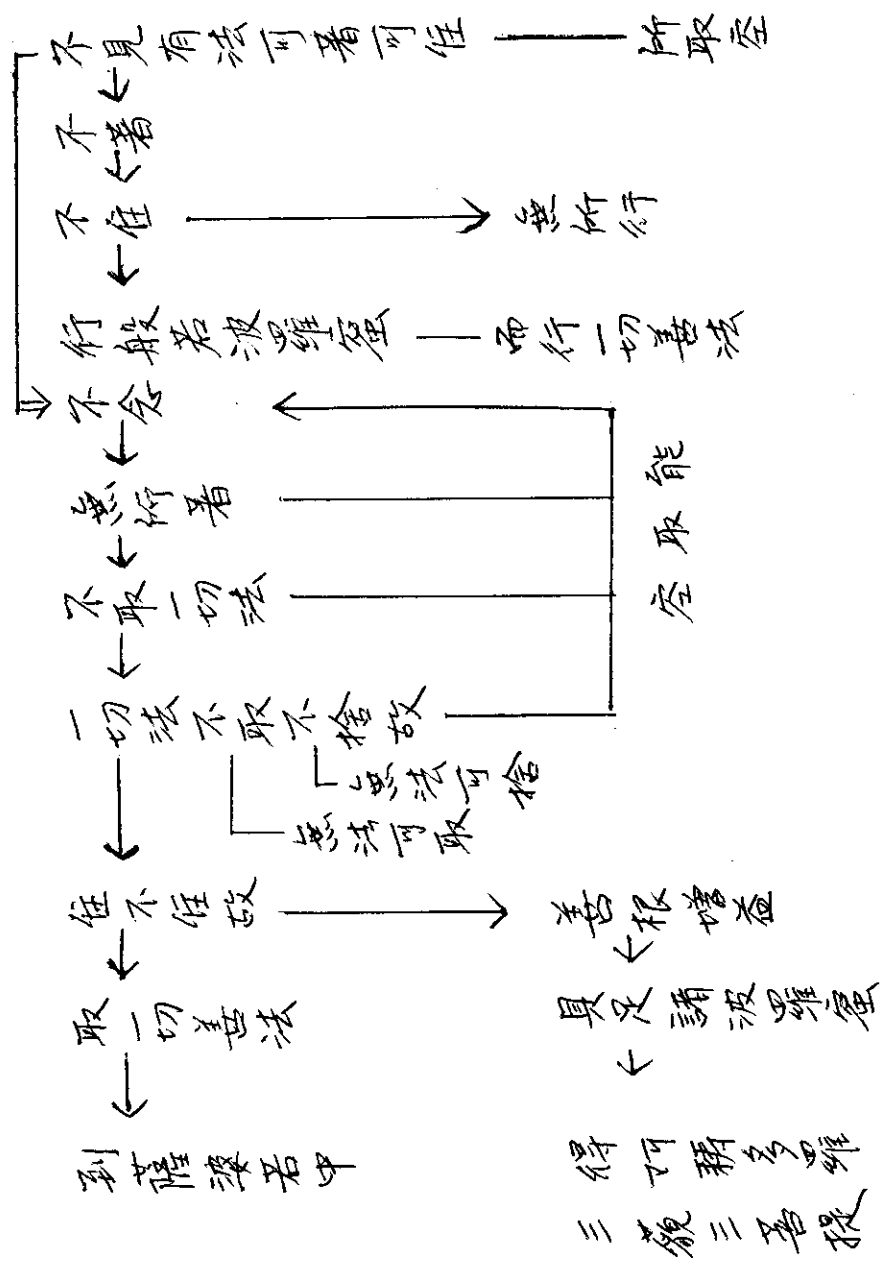 不見有法可著可住
所取空
不著
不住
無所行
行般若波羅蜜
而行一切善法
不念
無所著
不取一切法
能取空
一切法不取不捨故
無法可捨
無法可取
住不住故
善根增益
取一切善法
具足諸波羅蜜
到薩婆若中
得阿耨多羅
三藐三菩提